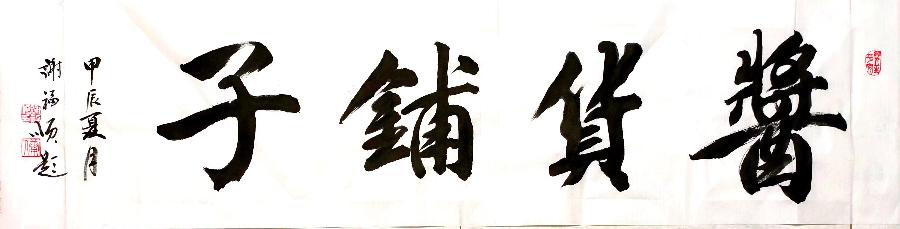 醬货鋪子
甲辰夏月
謝福順題